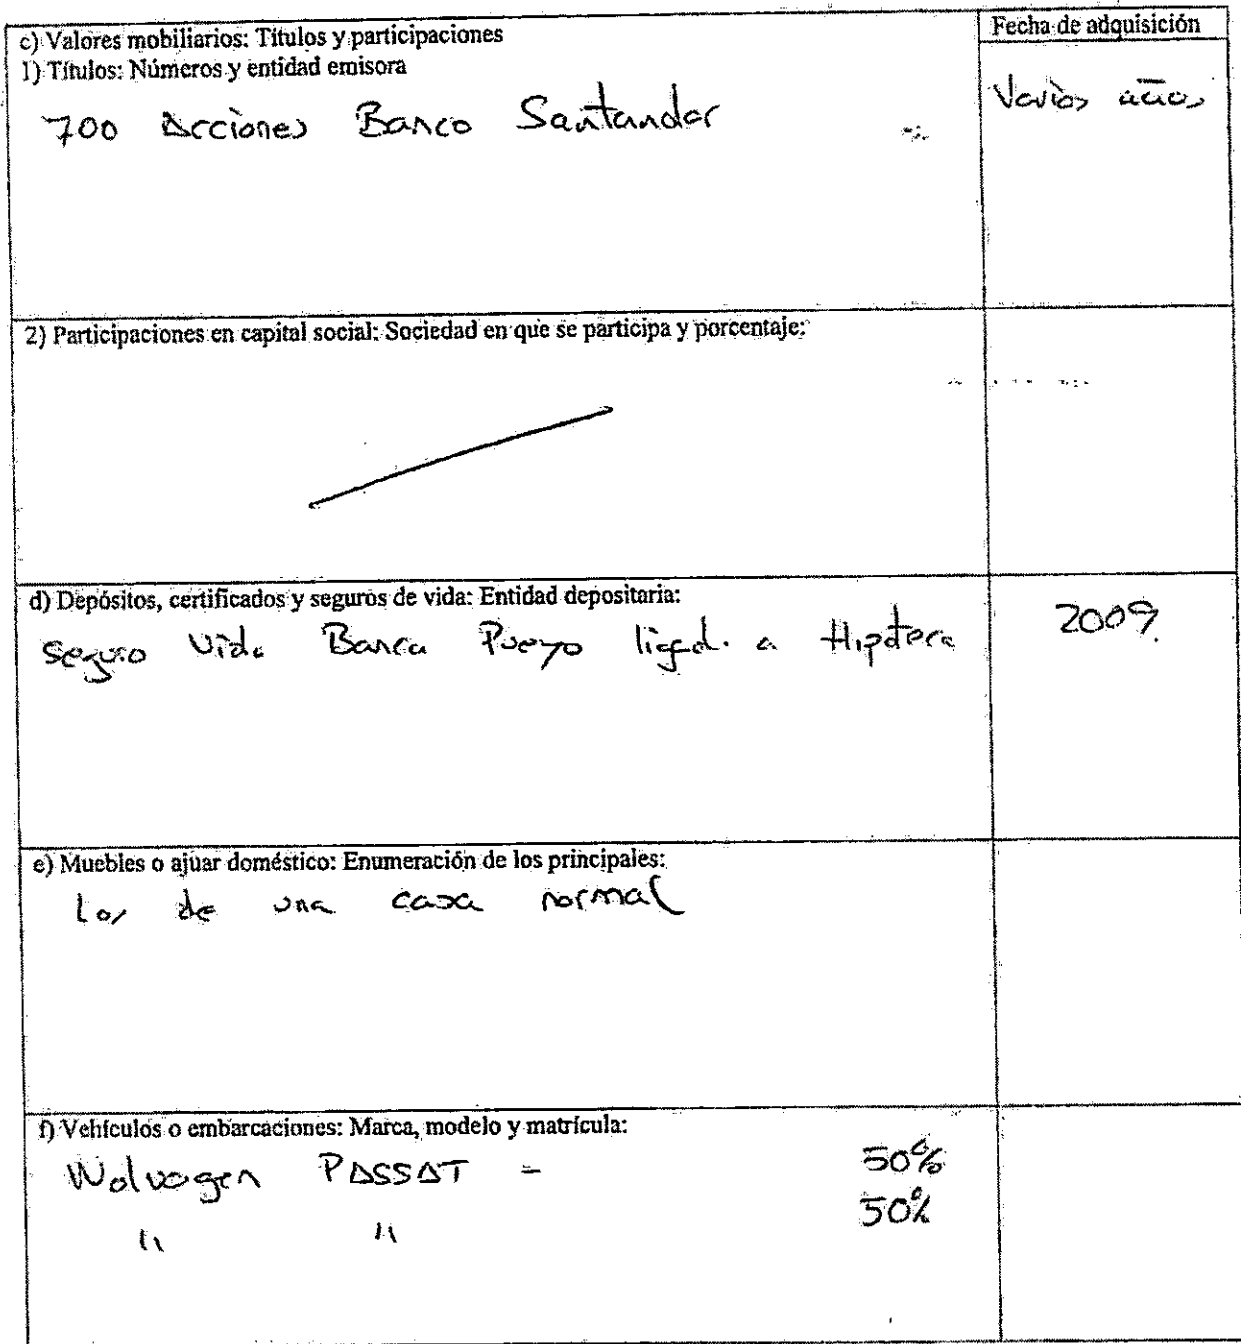 c) Valores mobiliarios: Títulos y participaciones
Fecha de adquisición
1) Títulos: Números y entidad emisora
700 Acciones Banco Santander
Varios años
2) Participaciones en capital social: Sociedad en que se participa y porcentaje:
d) Depósitos, certificados y seguros de vida: Entidad depositaria:
Seguro Vida Banca Pueyo ligad. a Hipoteca
2009.
e) Muebles o ajuar doméstico: Enumeración de los principales:
Los de una casa normal
f) Vehículos o embarcaciones: Marca, modelo y matrícula:
Wolvagen PASSAT - 50%
" " 50%